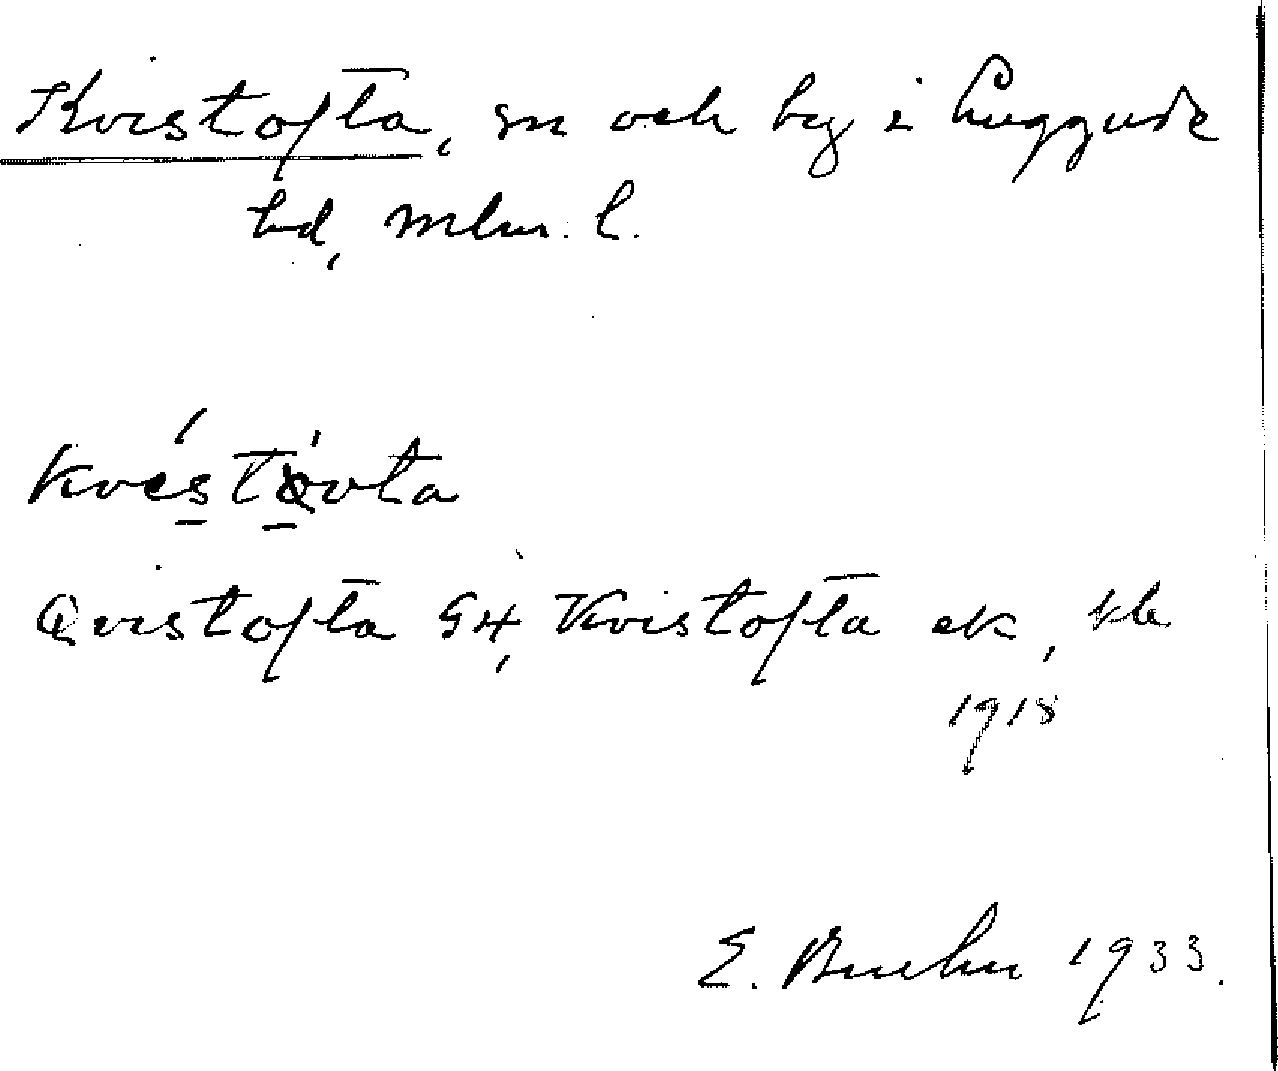 Kvistofta, sn och by i Luggude
hd, Mlm. l.
Kvistofta G4, Kvistofta ek, kb
1918
E. 1933.